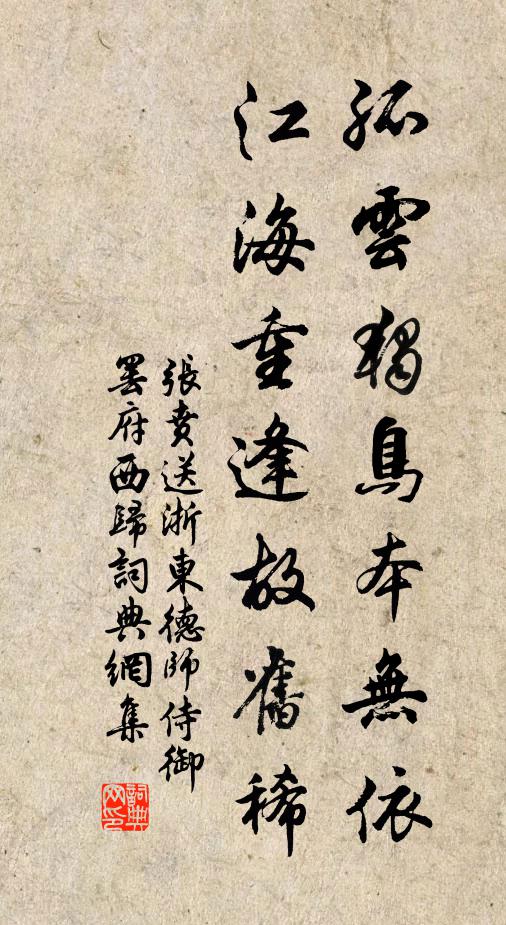 孤雲獨鳥本無依
江海重逢故舊稀
張賁送浙東德師侍御
罷府西歸詞典網集
詞典
网印